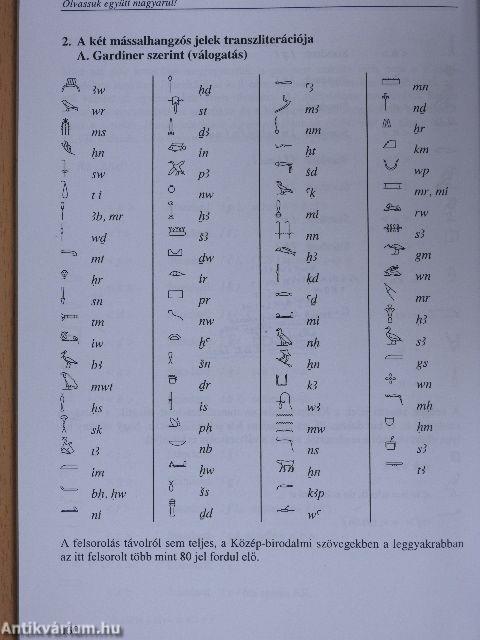 Olvassuk együtt magyarul!
2. A két mássalhangzós jelek transzliterációja
A. Gardiner szerint (válogatás)
ꜣw
wr
ms
ḥn
sw
ti
ꜣb, mr
wḏ
mt
ḥr
sn
tm
iw
bꜣ
mwt
ḥs
sk
tꜣ
im
bḥ, ḥw
ni
ḥḏ
st
ḏꜣ
in
pꜣ
nw
ḥꜣ
šꜣ
ḏw
ir
pr
nw
šn
ḏr
is
pḥ
nb
ḥw
šs
ḏd
ꜥꜣ
mꜣ
nm
ḫt
šd
ꜥḳ
mi
nn
ḥꜣ
ḳd
ꜥḏ
mi
nḥ
ẖn
kꜣ
wꜣ
mw
ns
ḥn
kꜣp
wꜥ
mn
nḏ
ḥr
km
wp
mr, mi
rw
sꜣ
gm
wn
mr
ḫꜣ
sꜣ
gs
wn
mḥ
ḥm
sꜣ
tꜣ
A felsorolás távolról sem teljes, a Közép-birodalmi szövegekben a leggyakrabban
az itt felsorolt több mint 80 jel fordul elő.
Antikvárium.hu